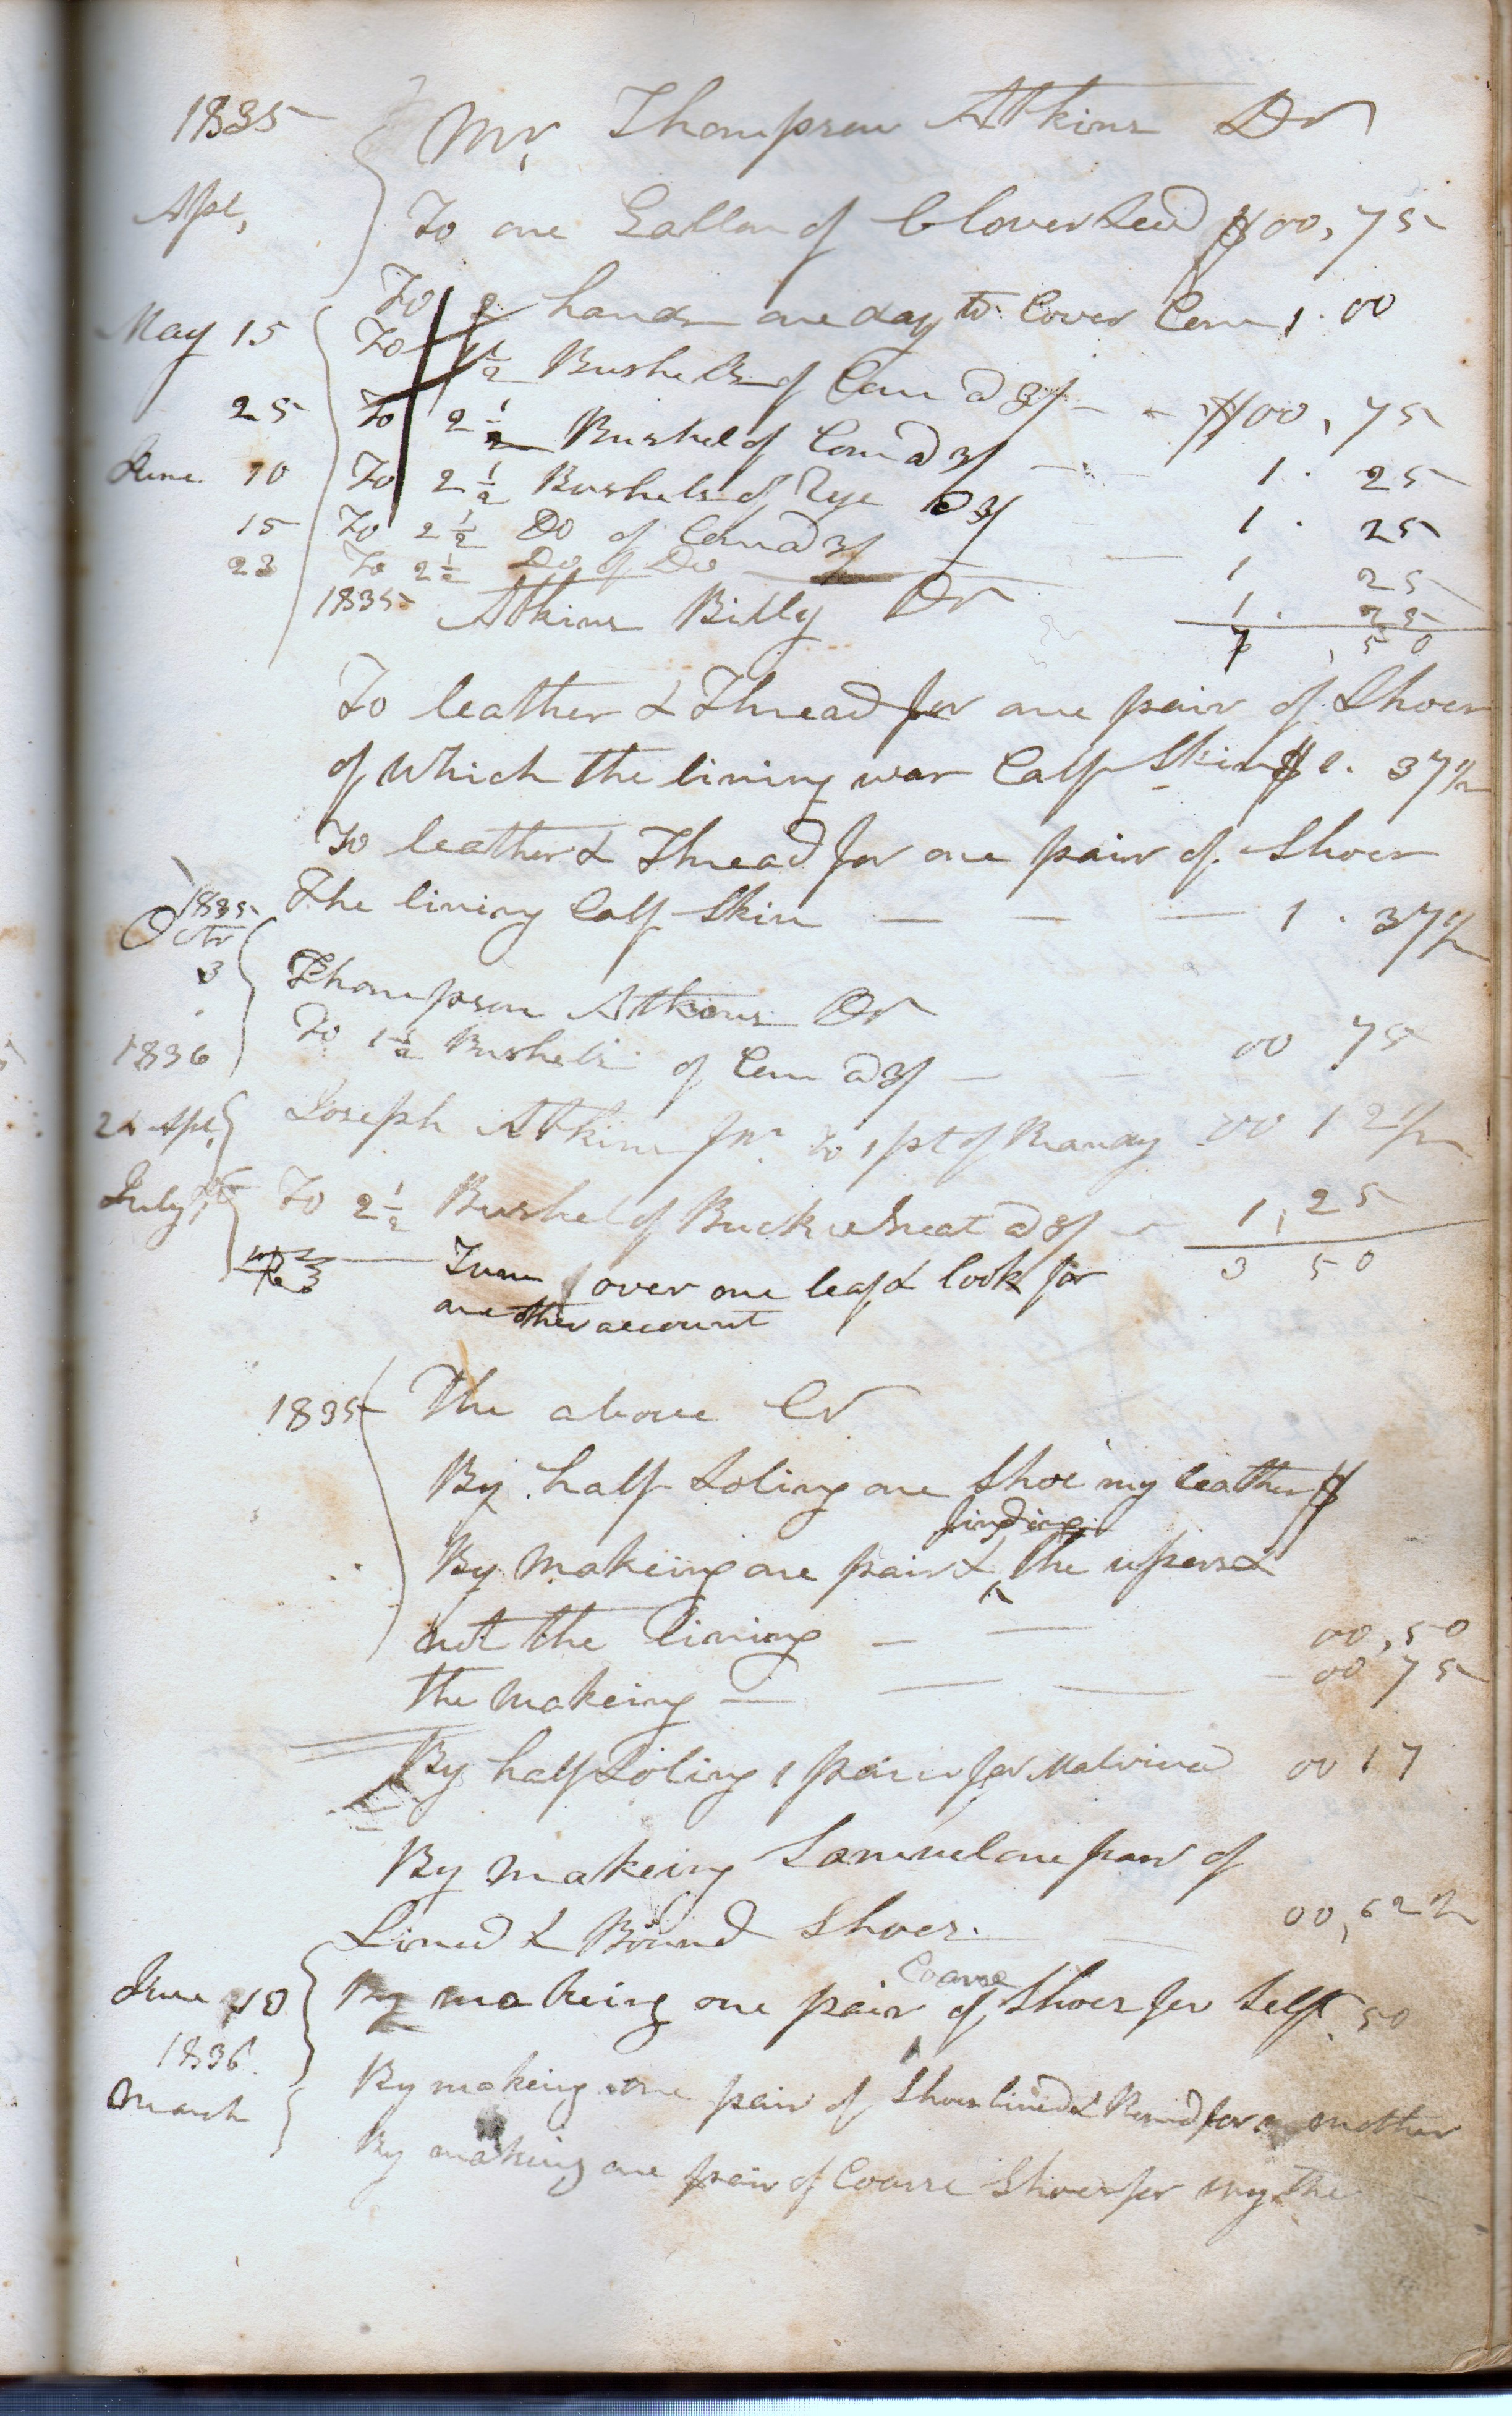 1835 Mr, Thompson Atkins Dr
Apl, To one Gallon of Cloverseed $00,75
To 2 hands one day to Cover Corn 1.00
May 15 To 1½ Bushels of Corn @ 3/ - - $00,75
25 To 2½ Bushel of Corn @ 3/ - - 1. 25
June 10 To 2½ Bushels of Rye @ 3/ - 1. 25
15 To 2½ Do of Corn @ 3/ - - 1 25
23 To 2½ Do of Do - - 1. 25
7,50
1835 Atkins Billy Dr
To leather & Thread for one pair of Shoes
of Which the lining was Calf Skin $1. 37½
To leather & Thread for one pair of Shoes
The lining Calf Skin - - - 1. 37½
1835
Octr
3 Thompson Atkins Dr
To 1½ Bushels of Corn @ 3/ - - 00 75
1836
24 Apl, Joseph Atkins Jnr. To 1 pt of Brandy 00 12½
July, To 2½ Bushel of Buckwheat @ 3/ - 1,25
3 50
Turn over one leaf & look for
another account
1835 The above Cr
By half Soling one Shoe my leather $
finding
By makeing one pair & ^ the upers &
not the lining - - 00,50
the makeing - - - 00 75
By half Soling 1 pair for Malvina 00 17
By makeing Samuel one pair of
Lined & Bound Shoes. - 00,62½
Coarse
June 10 By makeing one pair of ^ Shoes for Self 50
1836
March By making one pair of Shoes lined & Bound for my mother
By making one pair of Coarse Shoes for my the